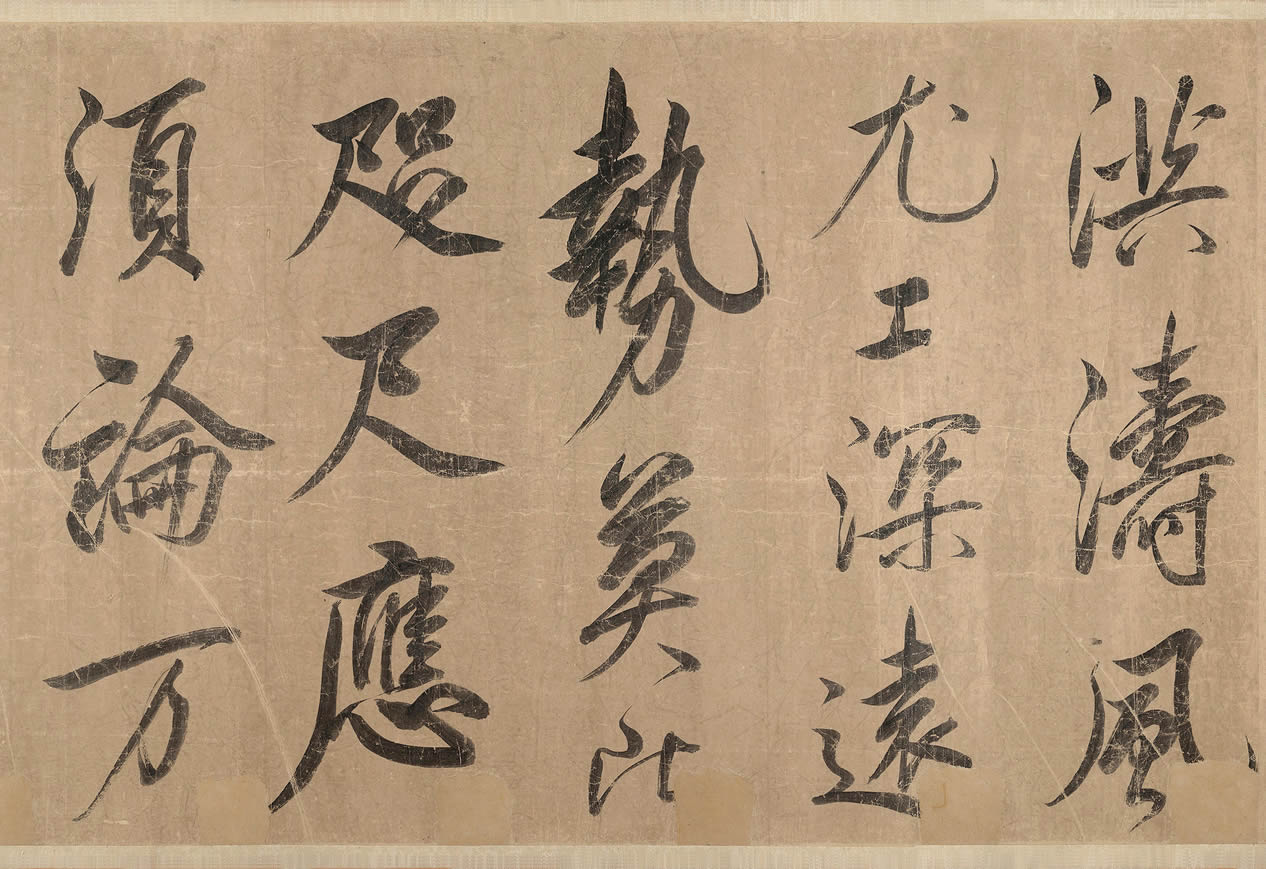 洪濤風
尤工深遠
勢莫比
咫尺應
須論万